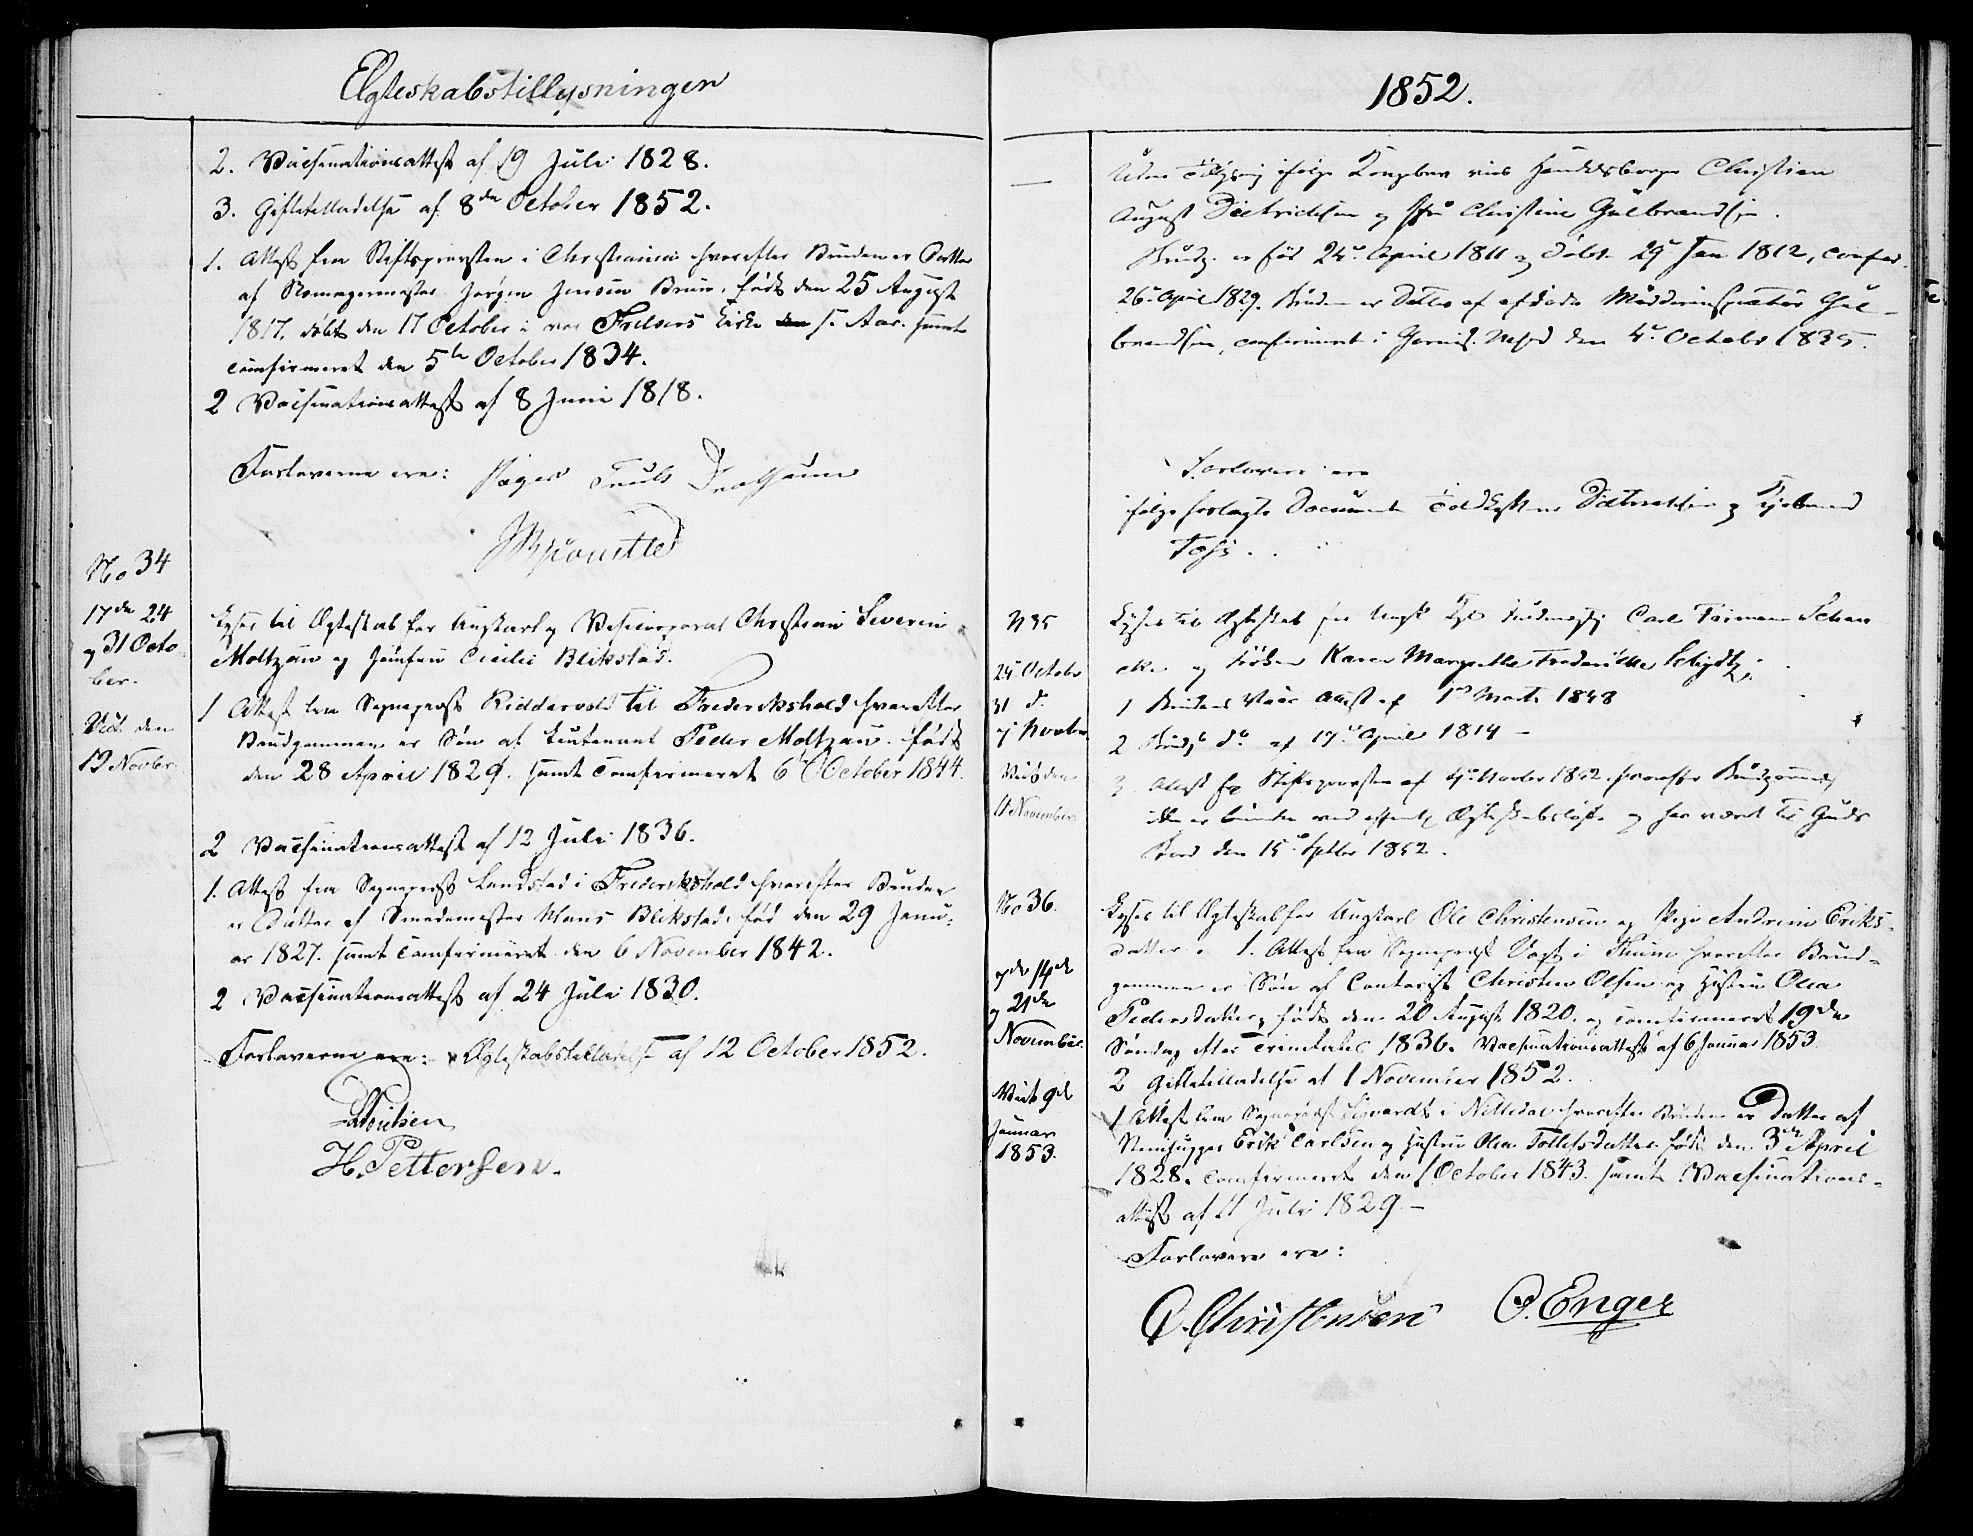 Ægteskabstillysninger
2. Vaccinationsattest af 19 Juli 1828.
3. Giftetilladelse af 8de October 1852.
1. Attest fra Stiftsprovsten i Christiania hvorefter Bruden er Datter
af Jørgen Jensen Bruun, født den 25 August
1817, døbt den 17 October i vor Frelsers Kirke s. Aar. samt
confirmeret den 5te October 1834.
2 Vaccinationsattest af 8 Juni 1818.
Forloverne ere:
No 34
17de 24
og 31 Octo-
ber.
Viet den
19 Novbr.
Lyses til Ægteskab for Ungkarl og Christian Severin
Moltzau og Jomfru Cicilie Blikstad.
1 Attest fra Sogneprest Riddervold til Frederikshald hvorefter
Brudgommen er Søn af Lieutenant Peder Moltzau. født
den 28 April 1829. samt confirmeret 6 October 1844.
2 Vaccinationsattest af 12 Juli 1836.
1. Attest fra Sogneprest Landstad i Frederikshald hvorefter Bruden
er Datter af Smedemester Hans Blikstad. født den 29 Janu-
ar 1827. samt confirmeret den 6 November 1842.
2 Vaccinationsattest af 24 Juli 1830.
Forloverne ere: Ægteskabstilladelse af 12 October 1852.
H. Pettersen.
1852.
Uden Tillysning ifølge Kongebrev viet Handelsborger Christian
August Dietrichson og Christine Gulbrandsen.
Brudg. er født 24de April 1811 og døbt 29de Jan 1812, confir.
26de April 1829. Bruden er Datter af afdøde Gul-
brandsen, confirmeret i Menighed den 4de October 1835.
Forlovere ere
ifølge forlagte Document Dietrichson og Kjøbmand
N 35
24de Octobr
31 d.
7 Novbr
Viet den
11 November
Lyses til Ægteskab for Ungk. Carl
og Frøken Karen Margrethe Frederikke
1 Brudens Vacc. Attest af 1ste Marts 1848
2 Brudgs do af 17de April 1814 -
3. Attest fra Stiftsprovsten af Novbr 1852. hvorefter Brudgommen
ikke er bunden ved offentlig Ægteskabsløfte og har været til Guds
Bord den 15de Septbr 1852.
No 36.
7de 14de
og 21de
November
Viet 9de
Januar
1853.
Lyses til Ægteskab for Ungkarl Ole Christensen og Pige Andrine Eriks-
datter. 1. Attest fra Sogneprest Vogt i hvorefter Brud-
gommen er Søn af Contorist Christen Olsen og Hustru Olea
Pedersdatter, født den 20 August 1820. og confirmeret 19de
Søndag efter Trinitatis 1836. Vaccinationsattest af 6 Januar 1853
2 Giftetilladelse af 1 November 1852.
1 Attest fra Sogneprest Sigvardt i Nittedal hvorefter Bruden er Datter af
Steenhugger Erik Carlsen og Hustru Olea Tollefsdatter. født den 3die April
1828. confirmeret den 1 October 1843. samt Vaccinations-
attest af 11 Juli 1829. -
Forlovere ere:
O. Christensen O. Enger